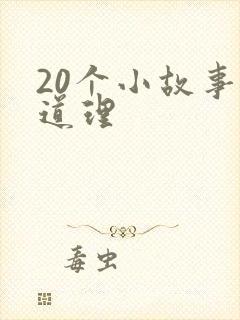 20个小故事
道理
毒虫